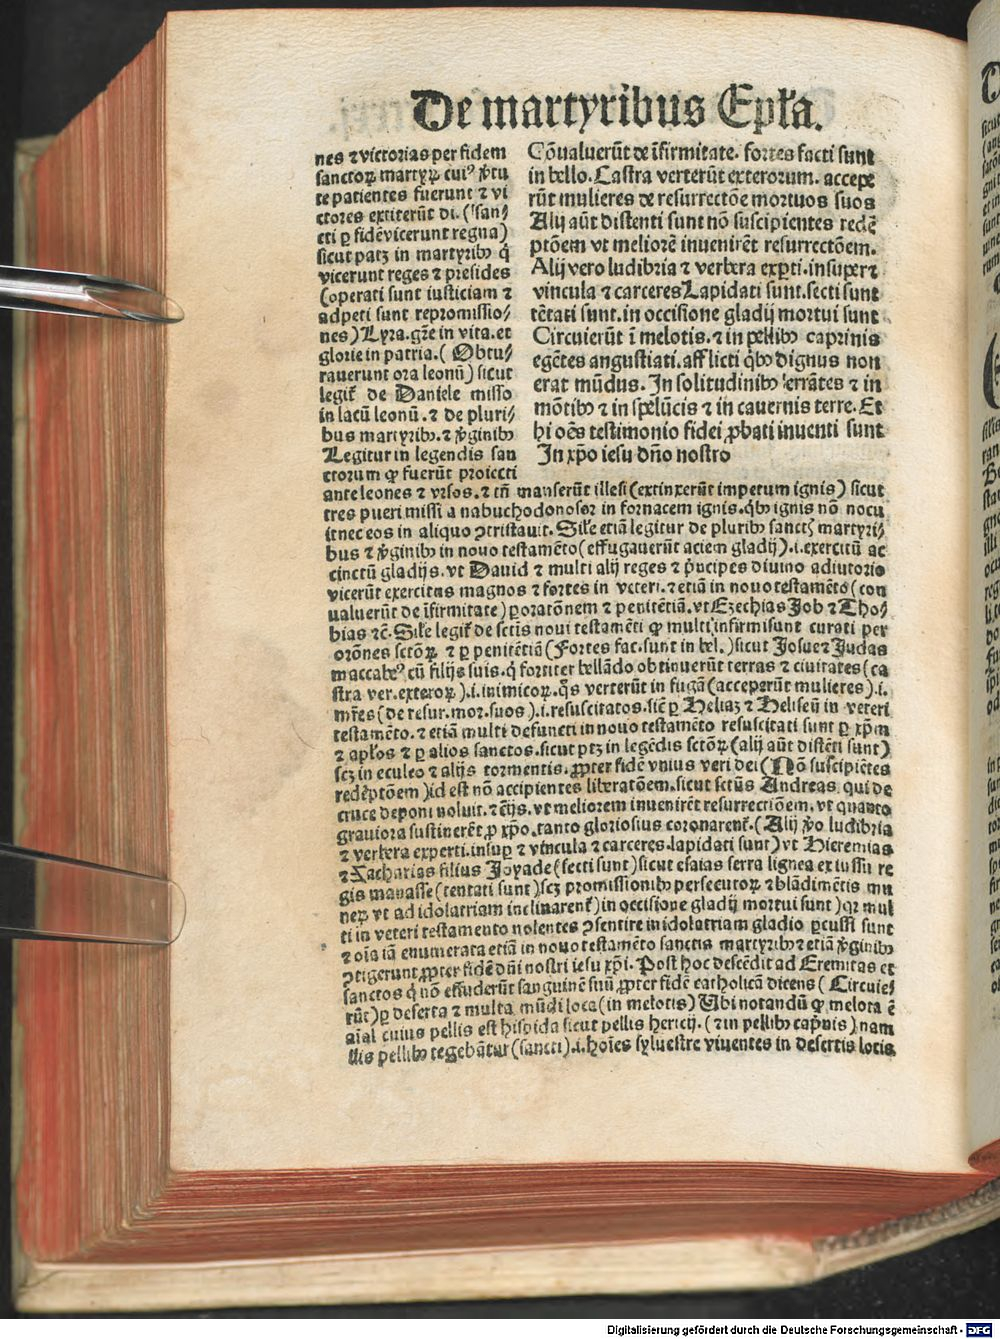 De martyribus Epła.
nes ⁊ victorias per fidem
sanctoꝝ martyꝝ cuiꝰ v̓tu
te patientes fuerunt ⁊ vi
ctores extiterūt di. (san⸗
cti ꝑ fidē vicerunt regna)
sicut patꝫ in martyribꝫ q̇
vicerunt reges ⁊ presides
(operati sunt iusticiam ⁊
adpeti sunt repromissio⸗
nes) Lyra. gr̄e in vita. et
glorie in patria. (Obtu⸗
rauerunt ora leonū) sicut
legit̉ de Daniele misso
in lacū leonū. ⁊ de pluri⸗
bus martyribꝫ. ⁊ v̓ginibꝫ
Legitur in legendis san
ctorum ꝙ fuerūt proiecti
Cōualuerūt de īfirmitate. fortes facti sunt
in bello. Castra verterūt exterorum. accepe
rūt mulieres de resurrectōe mortuos suos
Alij aūt distenti sunt nō suscipientes redē
ptōem vt meliorē inuenirēt resurrectōem.
Alij vero ludibria ⁊ verbera expti. insuper ⁊
vincula ⁊ carceres Lapidati sunt. secti sunt
tētati sunt. in occisione gladij mortui sunt
Circuierūt ī melotis. ⁊ in pellibꝫ caprinis
egētes angustiati. afflicti q̇bꝫ dignus non
erat mūdus. In solitudinibꝫ errātes ⁊ in
mōtibꝫ ⁊ in spelūcis ⁊ in cauernis terre. Et
hi oēs testimonio fidei ꝓbati inuenti sunt
In xp̄o iesu dn̄o nostro
ante leones ⁊ vrsos. ⁊ tn̄ manserūt illesi (extinxerūt impetum ignis) sicut
tres pueri missi a nabuchodonosor in fornacem ignis. q̇bꝫ ignis nō nocu
it nec eos in aliquo ꝯtristauit. Sil̓e etiā legitur de pluribꝫ sanctꝭ martyri⸗
bus ⁊ v̓ginibꝫ in nouo testamēto (effugauerūt aciem gladij) .i. exercitū ac
cinctū gladijs. vt Dauid ⁊ multi alij reges ⁊ p̓ncipes diuino adiutorio
vicerūt exercitus magnos ⁊ fortes in veteri. ⁊ etiā in nouo testamēto (con
ualuerūt de īfirmitate) ꝑ oratōnem ⁊ penitētiā. vt Ezechias Job ⁊ Tho⸗
bias ⁊c̄. Sil̓e legit̉ de sctīs noui testamēti ꝙ multi infirmi sunt curati per
orōnes sctōꝝ ⁊ ꝑ penitētiā (Fortes fac. sunt in bel.) sicut Josue ⁊ Judas
maccabeꝰ cū filijs suis. q̇ fortiter bellādo obtinuerūt terras ⁊ ciuitates (ca
stra ver. exteroꝝ) .i. inimicoꝝ. q̇s verterūt in fugā (acceperūt mulieres) .i.
mr̄es (de resur. mor. suos) .i. resuscitatos. sic̄ ꝑ Heliaꝫ ⁊ Heliseū in veteri
testamēto. ⁊ etiā multi defuncti in nouo testamēto resuscitati sunt ꝑ xp̄m
⁊ apl̓os ⁊ ꝑ alios sanctos. sicut ptꝫ in legēdis sctōꝝ (alij aūt distēti sunt)
scꝫ in eculeo ⁊ alijs tormentis. ꝓpter fidē vnius veri dei (Nō suscipiētes
redēptōem) id est nō accipientes liberatōem. sicut sctūs Andreas. qui de
cruce deponi noluit. ⁊ c̄ijs. vt meliorem inuenirēt resurrectiōem. vt quanto
grauiora sustinerēt ꝓ xp̄o. tanto gloriosius coronarent̉. (Alij v̓o ludibria
⁊ verbera experti. insuꝑ ⁊ vincula ⁊ carceres. lapidati sunt) vt Hieremias
⁊ Zacharias filius Joyade (secti sunt) sicut esaias serra lignea ex iussu re
gis manasse (tentati sunt) scꝫ promissionibꝫ persecutoꝝ ⁊ blādimētis mu
neꝝ vt ad idolatriam inclinarent̉) in occisione gladij mortui sunt) qꝛ mul
ti in veteri testamento nolentes ꝯsentire in idolatriam gladio ꝑcussi sunt
⁊ oīa iā enumerata etiā in nouo testamēto sanctis martyribꝫ ⁊ etiā v̓ginibꝫ
ꝯtigerunt ꝓpter fidē dn̄i nostri iesu xp̄i. Post hoc descēdit ad Eremitas et
sanctos q̇ nō effuderūt sanguinē suū ꝓpter fidē catholicā dicens (Circuie⸗
rūt) ꝑ deserta ⁊ multa mūdi loca (in melotis) Vbi notandū ꝙ melota ē
aīal cuius pellis est hispida sicut pellis hericij. (⁊ in pellibꝫ cap̓nis) nam
illis pellibꝫ tegebātur (sancti) .i. hoīes syluestre viuentes in desertis locis
Digitalisierung gefördert durch die Deutsche Forschungsgemeinschaft - DFG